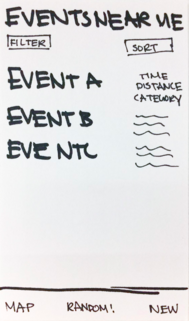 EVENTS NEAR ME
FILTER
SORT
EVENT A
TIME
DISTANCE
CATEGORY
EVENT B
EVENTC
MAP RANDOM! NEW